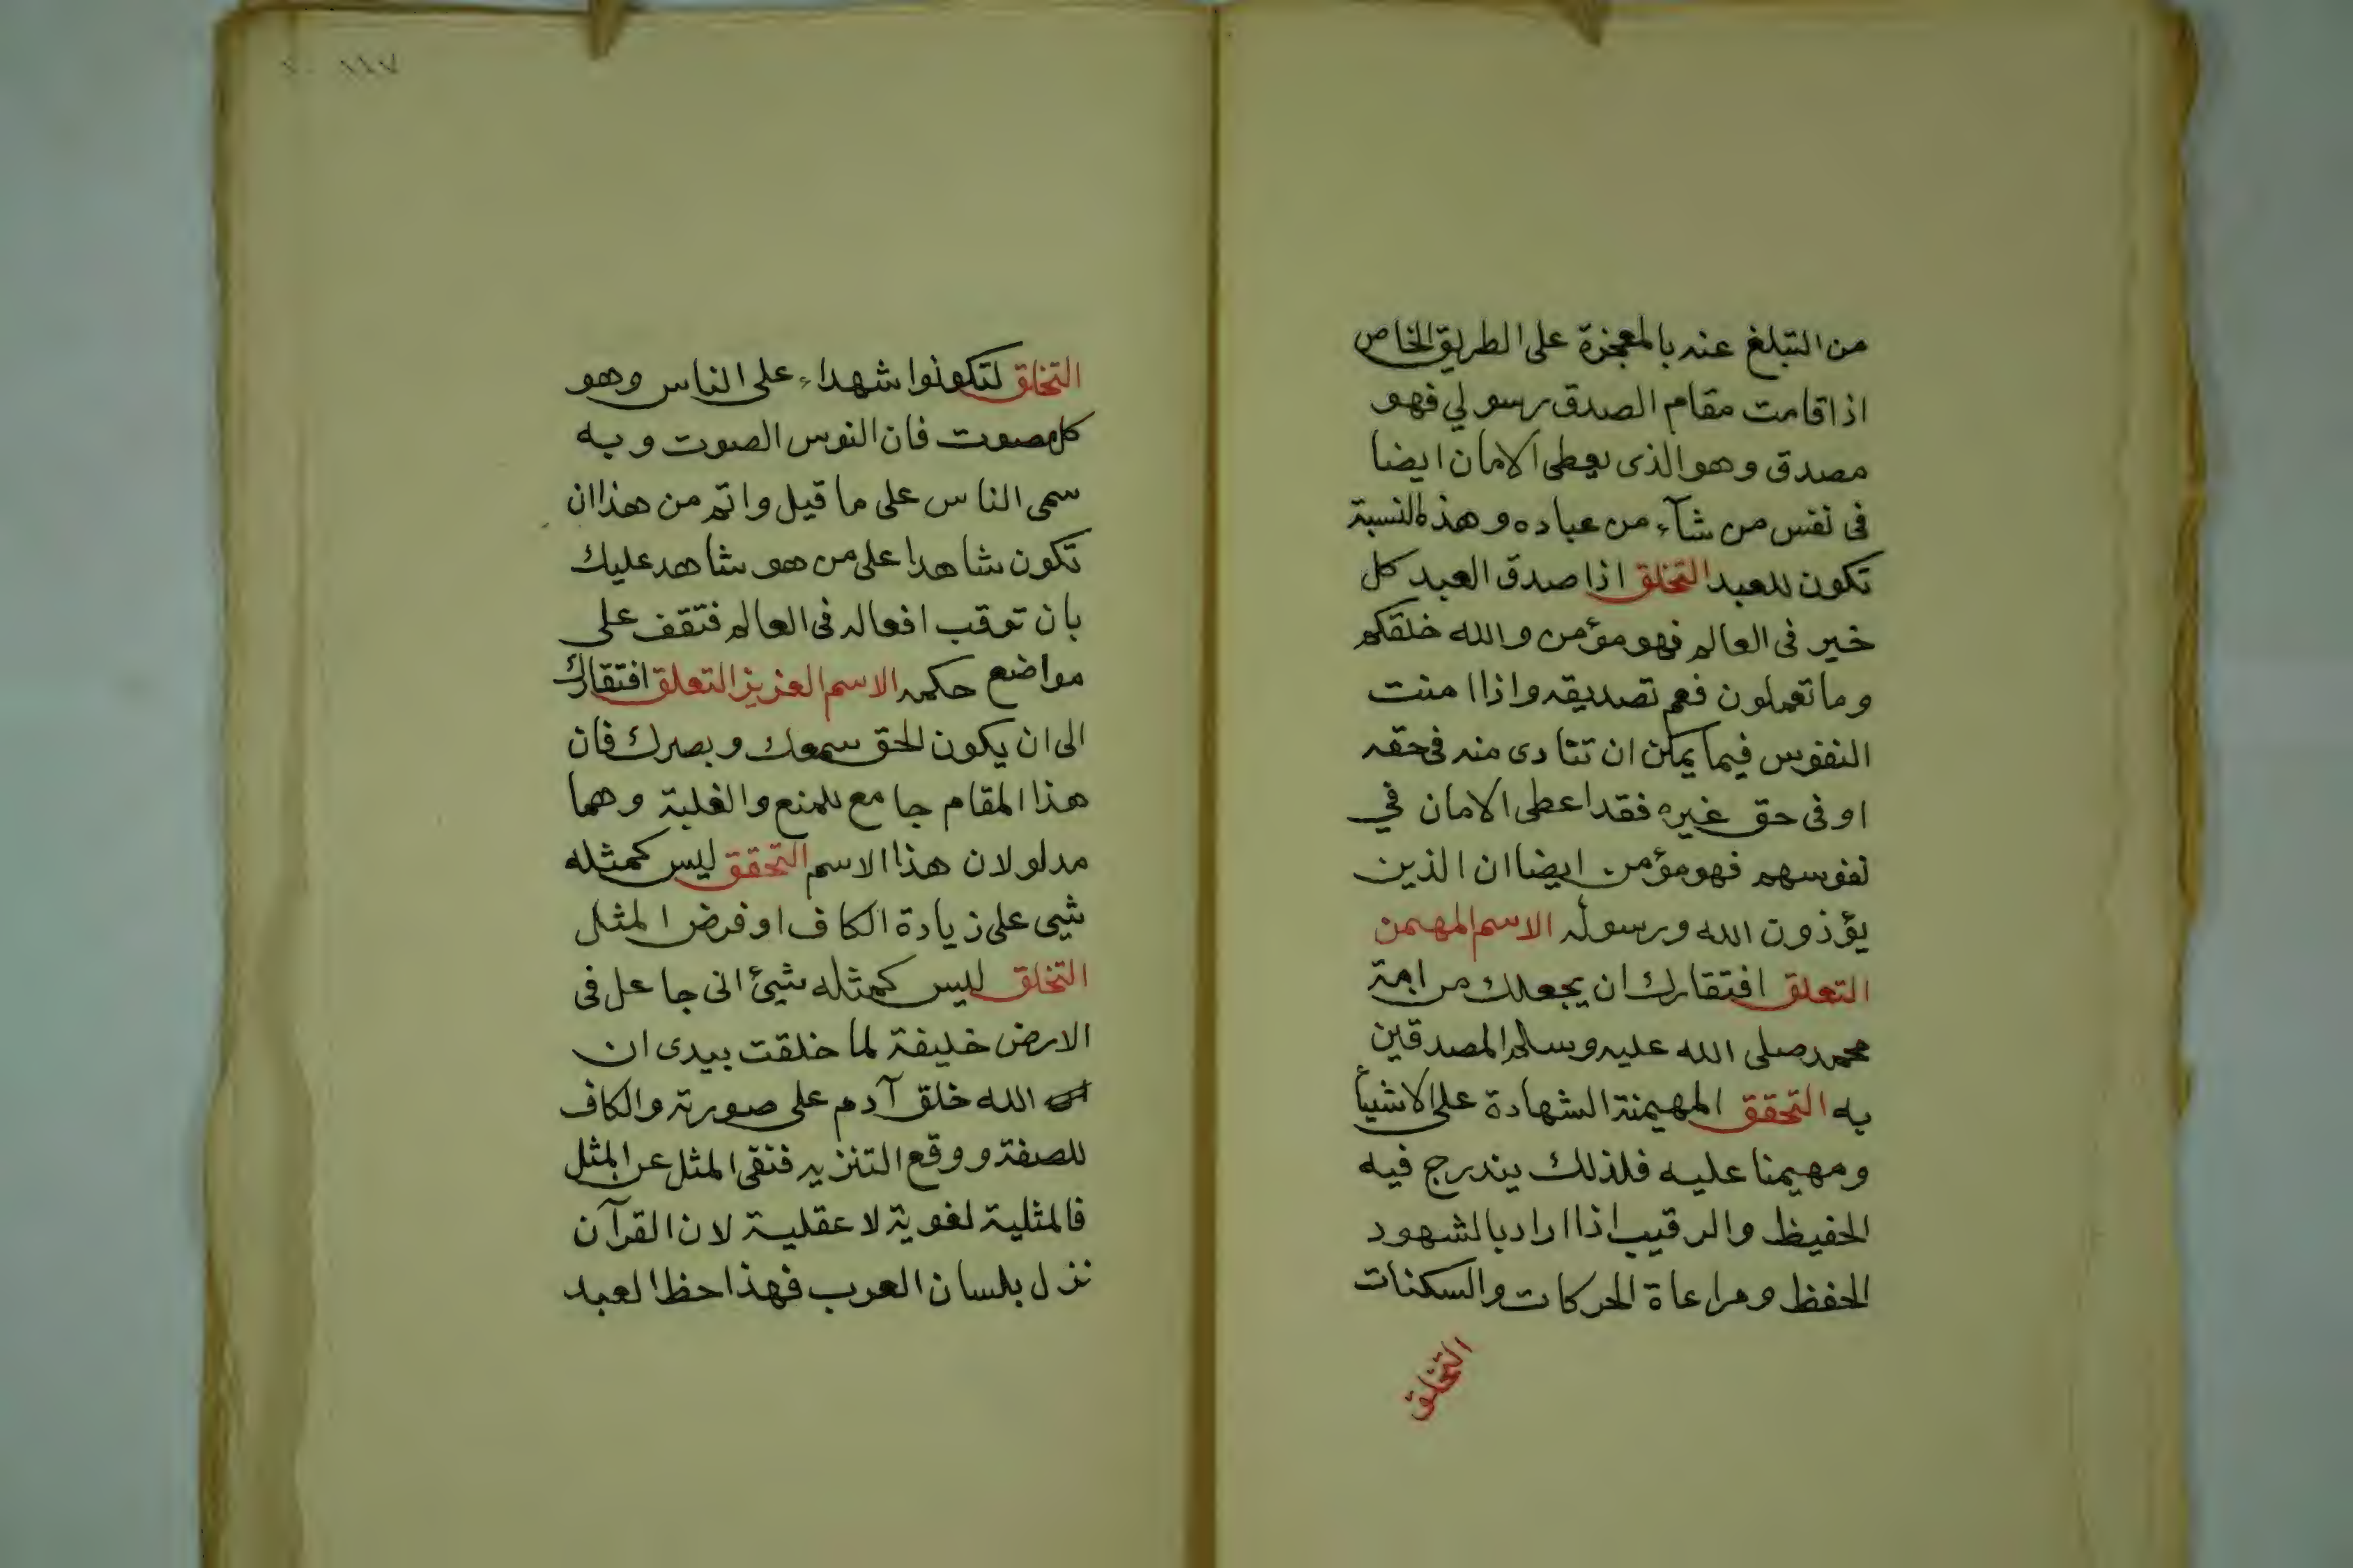 من التبلغ عنه بالمعجزة على الطريق الخاص
اذا قامت مقام الصدق رسولي فهو
مصدق وهو الذى يعطى الامان ايضا
فى نفس من شآء من عباده وهذه النسبة
تكون للعبد التخلق اذا صدق العبد كل
خير فى العالم فهو مؤمن والله خلقكم
وما تعملون فعم تصديقه واذا امنت
النفوس فيما يمكن ان تتادى منه فى حقه
او فى حق غيره فقد اعطى الامان في
نفوسهم فهو مؤمن ايضا ان الذين
يؤذون الله ورسوله الاسم المهيمن
التعلق افتقارك ان يجعلك من امة
محمد صلى الله عليه وسلم المصدقين
به التحقق المهيمنة الشهادة على الاشيأ
ومهيمنا عليه فلذلك يندرج فيه
الحفيظ والرقيب اذا اراد بالشهود
الحفظ ومراعاة الحركات والسكنات
التخلق
١١٧
التخلق لتكونوا شهداء على الناس وهو
كل مصوت فان النوس الصوت وبه
سمى الناس على ما قيل واتم من هذا ان
تكون شاهدا على من هو شاهد عليك
بان توقب افعاله فى العالم فتقف على
مواضع حكمه الاسم العزيز التعلق افتقارك
الى ان يكون الحق سمعك وبصرك فان
هذا المقام جامع للمنع والغلبة وهما
مدلولان هذا الاسم التحقق ليس كمثله
شيى على زيادة الكاف او فرض المثل
التخلق ليس كمثله شيئ انى جاعل فى
الارض خليفة لما خلقت بيدى ان
الله خلق آدم على صورته والكاف
للصفة ووقع التنزيه فنفى المثل عن المثل
فالمثلية لغوية لا عقلية لان القرآن
نزل بلسان العرب فهذا حظ العبد